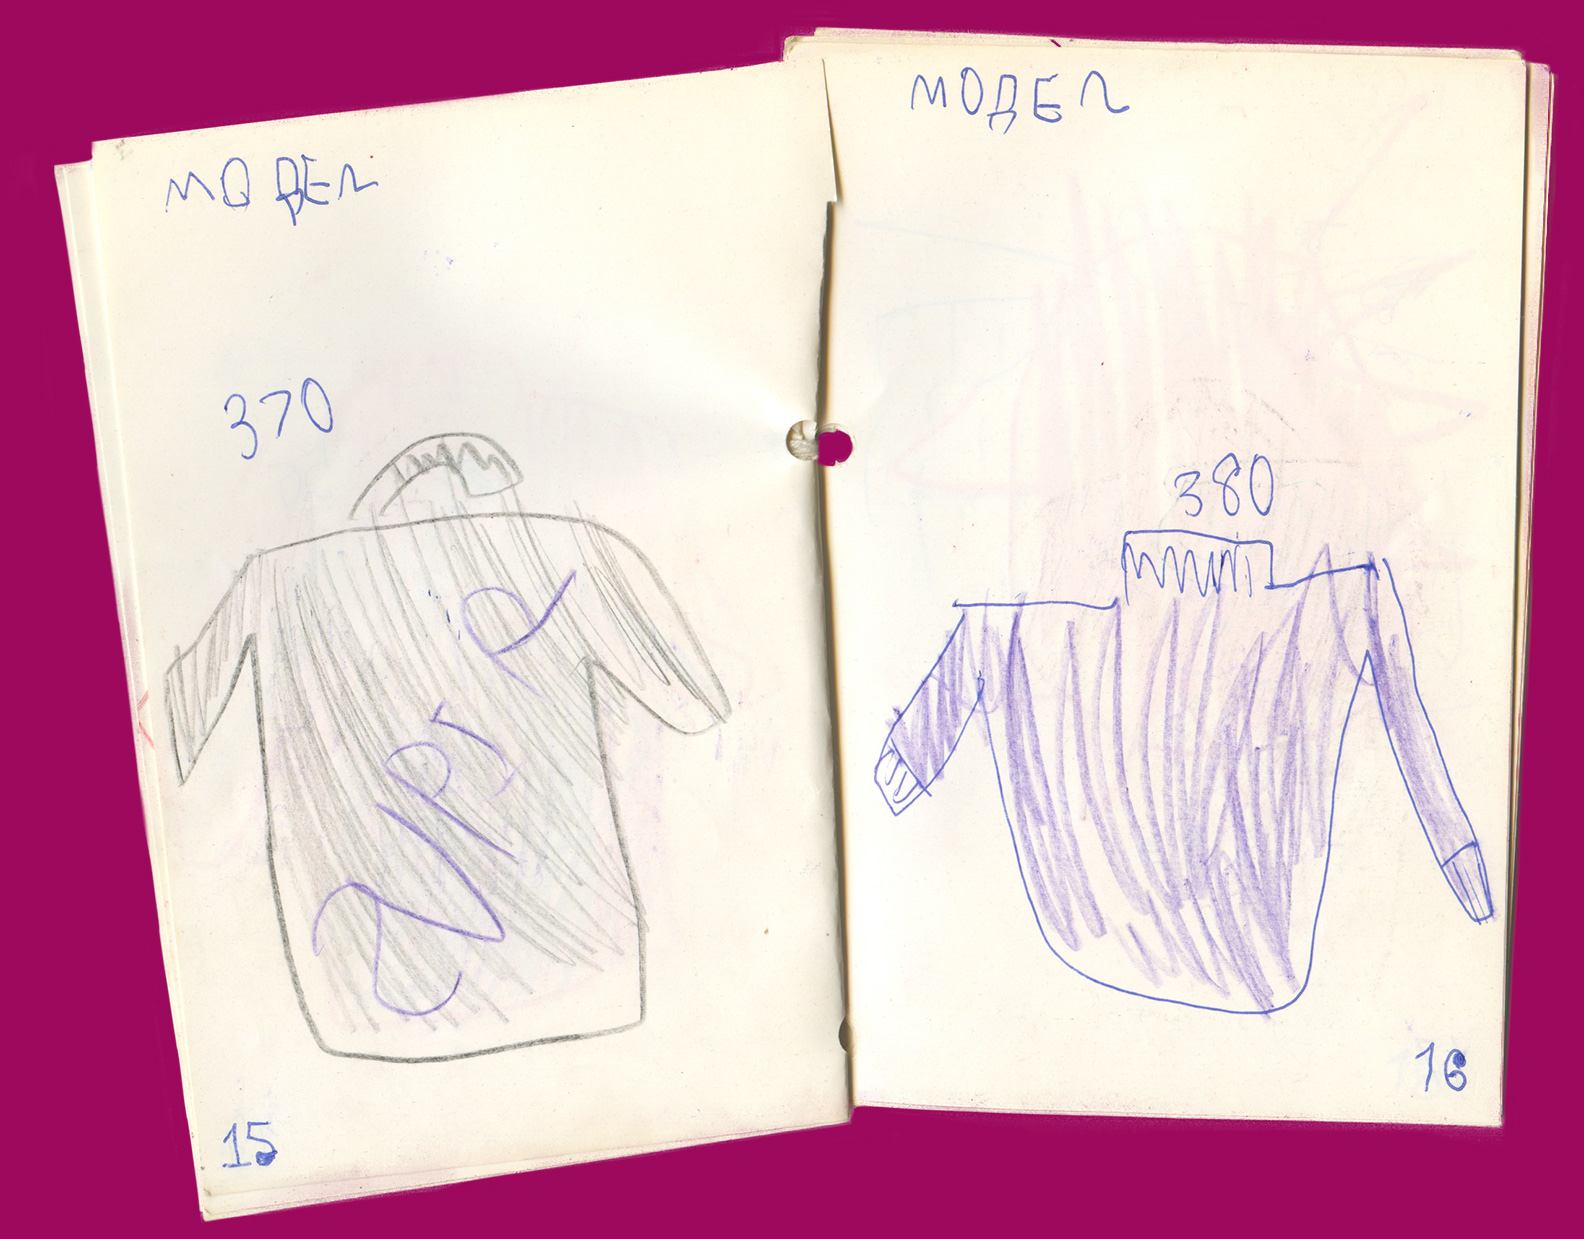 МОДЕЛ
370
15
МОДЕЛ
380
16